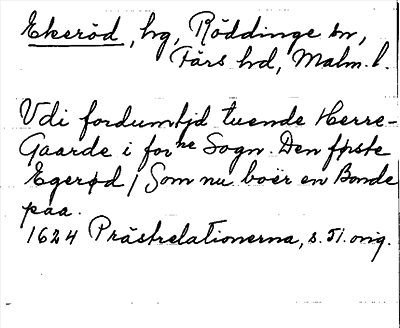 Ekeröd, hg, Röddinge sn,
Färs hd, Malm. l.
Vdi fordumtjd tuende Herre-
Gaarde i forne Sogn. Den første
Egerød / Som nu boër en Bonde
paa.
1624 Prästrelationerna, s. 51. orig.